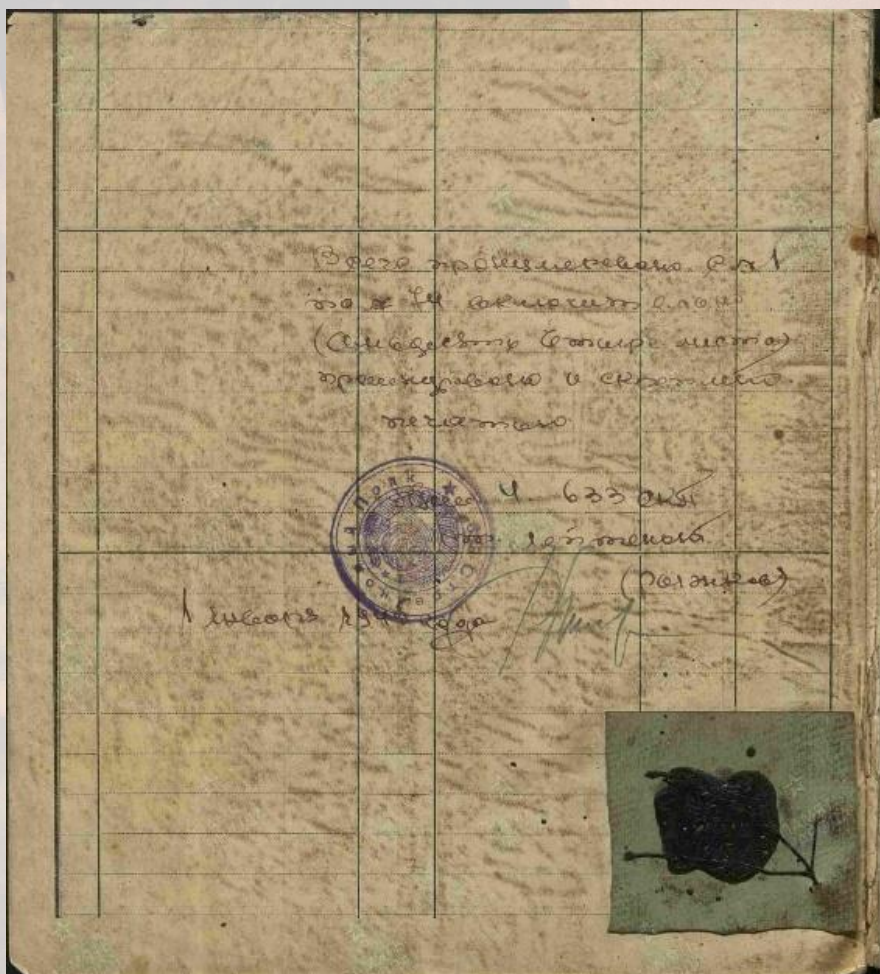 Всего пронумеровано с № 1
по № 74 включительно
(семьдесят четыре листа)
прошнуровано и скреплено
печатью
Ч. 633
лейтенант
1 января 194 года